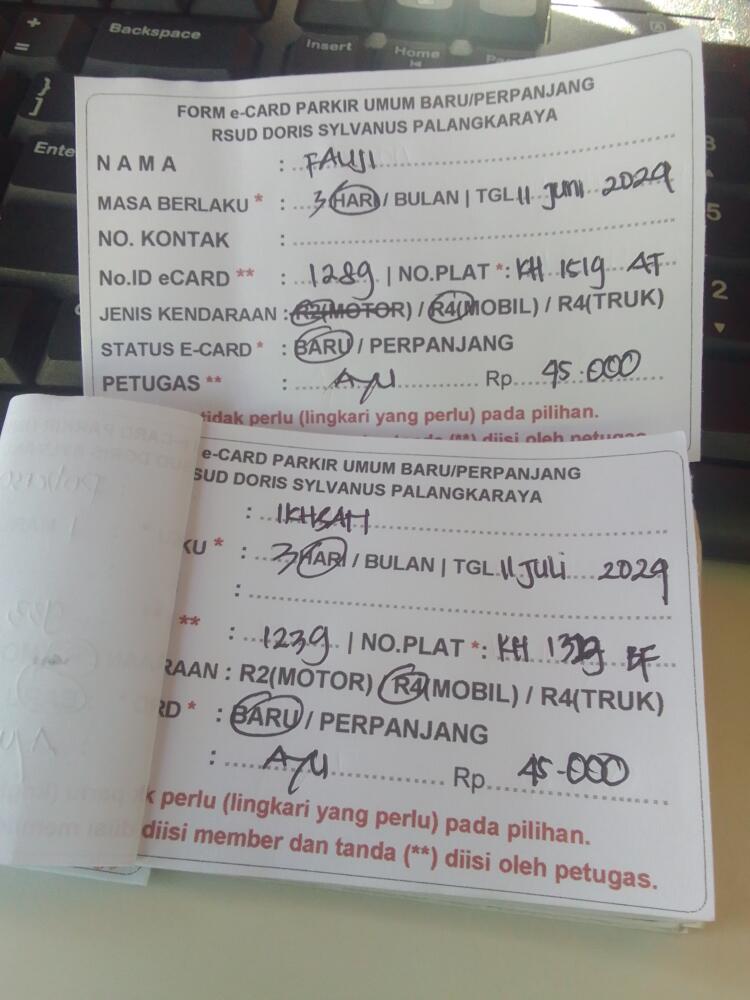 Backspace
Insert
Home
Enter
FORM e-CARD PARKIR UMUM BARU/PERPANJANG
RSUD DORIS SYLVANUS PALANGKARAYA
NAMA : FAUJI
MASA BERLAKU * : 3 HARI / BULAN | TGL 11 Juni 2029
NO. KONTAK :
No.ID eCARD ** : 1289 | NO.PLAT *: KH 1519 AT
JENIS KENDARAAN : R2(MOTOR) / R4(MOBIL) / R4(TRUK)
STATUS E-CARD * : BARU / PERPANJANG
PETUGAS ** : AYU Rp. 45.000
tidak perlu (lingkari yang perlu) pada pilihan.
tanda (**) diisi oleh petugas
e-CARD PARKIR UMUM BARU/PERPANJANG
SUD DORIS SYLVANUS PALANGKARAYA
: IKHSAH
KU * : 3 HARI / BULAN | TGL 11 JULI 2029
:
** : 1239 | NO.PLAT *: KH BF
RAAN : R2(MOTOR) / R4(MOBIL) / R4(TRUK)
RD * : BARU / PERPANJANG
: AYU Rp. 45-000
k perlu (lingkari yang perlu) pada pilihan.
diisi member dan tanda (**) diisi oleh petugas.